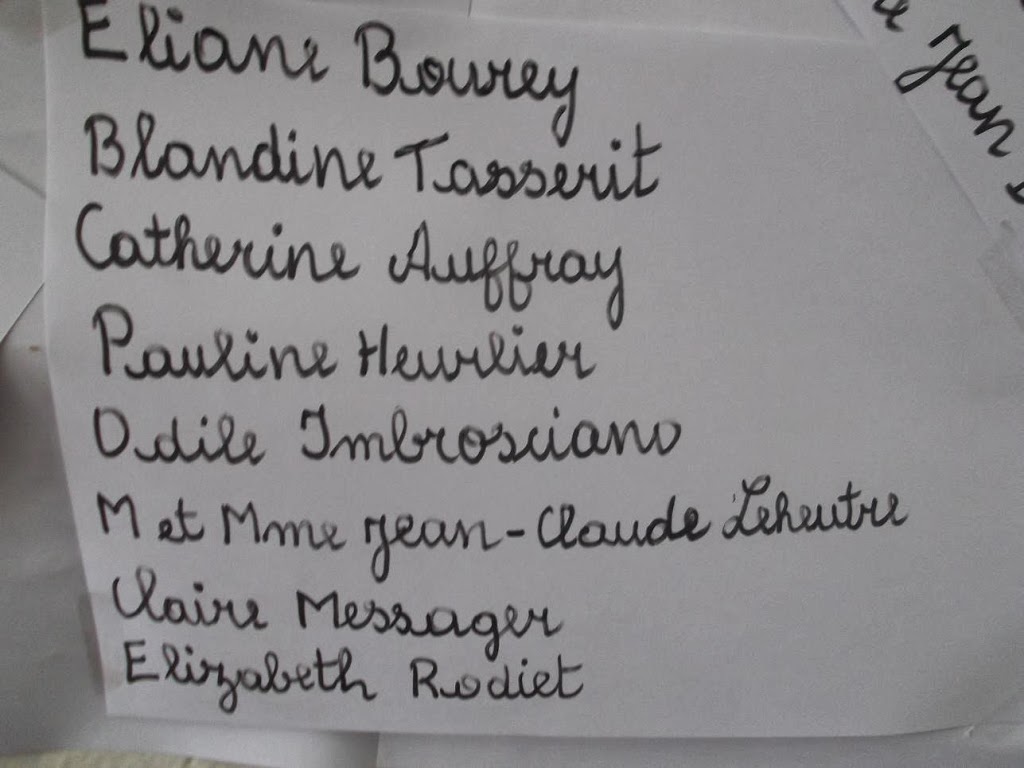 Eliane Bourey
Blandine Tasserit
Catherine Auffray
Pauline Heurlier
Odile Imbrosciano
M et Mme Jean-Claude Leheutre
Claire Messager
Elizabeth Rodiet
Jean